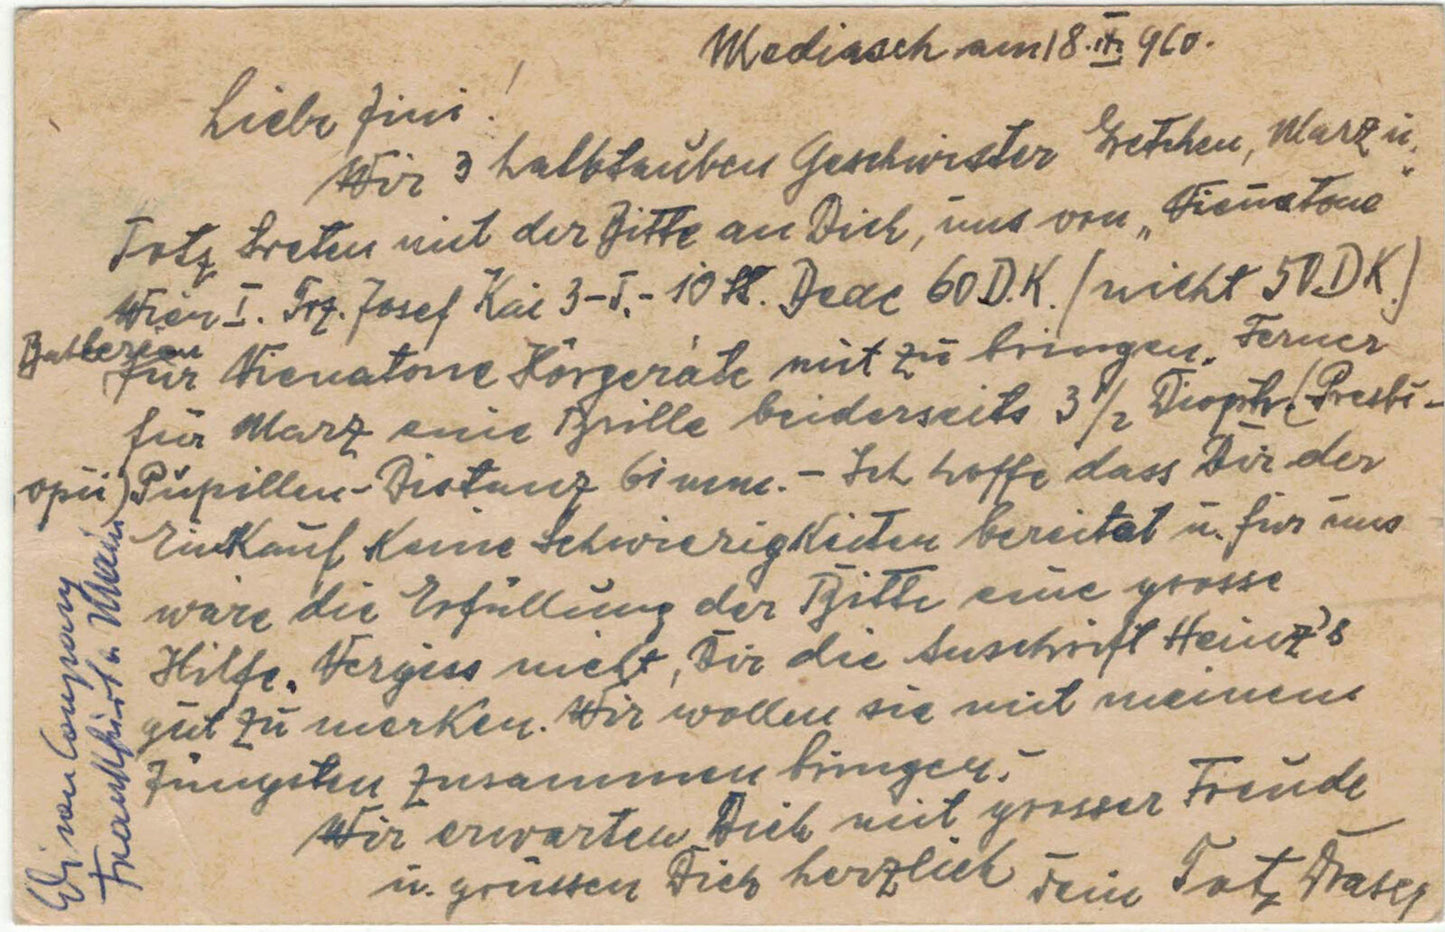 Mediasch am 18. III 960.
Liebe Fini!
Wir 3 halbtauben Geschwister Gretchen, Marz u.
Totz treten mit der Bitte an Dich, uns von „Vienatone"
Wien I. Frz. Josef Kai 3-I.- 10 St. Dede 60 D.K. (nicht 50 DK.)
Batterien
für Vienatone Hörgeräte mit zu bringen. Ferner
für Marz eine Brille beiderseits 3 1/2 Dioptr. (Presbi-
opii) Pupillen-Distanz 61 mm. - Ich hoffe dass Dir der
Einkauf keine Schwierigkeiten bereitet u. für uns
wäre die Erfüllung der Bitte eine grosse
Hilfe. Vergiss nicht, Dir die Anschrift Heinz's
gut zu merken. Wir wollen sie mit meinem
Jüngsten zusammen bringen.
Wir erwarten Dich mit grosser Freude
u. grüssen Dich herzlich Dein Totz
Company
Frankfurt a. Main